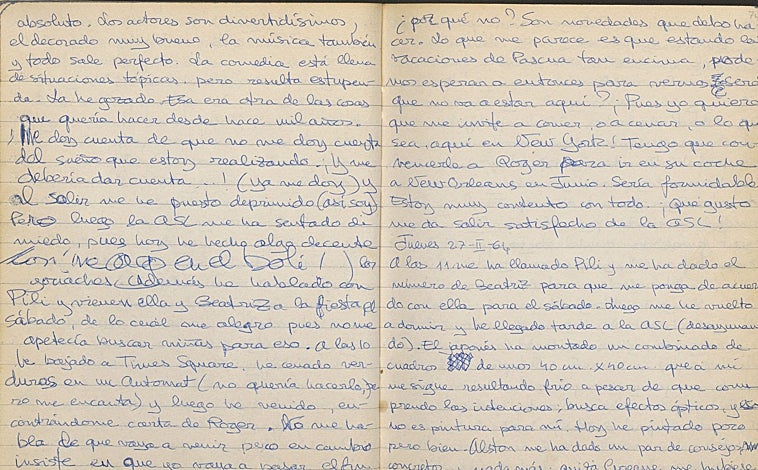 absoluto. Los actores son divertidísimos,
el decorado muy bueno, la música también
y todo sale perfecto. La comedia está llena
de situaciones tópicas, pero resulta estupen-
da. La he gozado. Esa era otra de las cosas
que quería hacer desde hace mil años.
¡Me doy cuenta de que no me doy cuenta
del sueño que estoy realizando. ¡Y me
debería dar cuenta...! (Ya me doy) y
al salir me he puesto deprimido (así soy)
Pero luego la ASL me ha sentado de
miedo, pues hoy he hecho algo decente
en el
(Además he hablado con
Pili y vienen ella y Beatriz a la fiesta el
sábado, de lo cual me alegro pues no me
apetecía buscar niñas para eso. A las 10
he bajado a Times Square, he cenado ver-
duras en un Automat (no quería hacerlo, pe-
ro me encanta) y luego he venido, en-
contrándome carta de Roger. No me ha-
bla de que vaya a venir pero en cambio
insiste en que yo vaya a pasar el fin
¿por qué no? Son novedades que debo ha-
cer. Lo que me parece es que estando las
vacaciones de Pascua tan encima, pode-
mos esperar a entonces para vernos ¿Será
que no va a estar aquí? ¡Pues yo quiero
que me invite a comer, o a cenar, o lo que
sea, aquí en New York! Tengo que con-
vencerle a Roger para ir en su coche
a New Orleans en Junio. Sería formidable
Estoy muy contento con todo. ¡Qué gusto
me da salir satisfecho de la ASL!
Jueves 27-II-64
A las 11 me ha llamado Pili y me ha dado el
número de Beatriz para que me ponga de acuer-
do con ella para el sábado. Luego me he vuelto
a dormir y he llegado tarde a la ASL (desayunan-
do). El japonés ha montado un combinado de
cuadros de unos 40 cm. x 40 cm. que a mí
me sigue resultando frío a pesar de que com-
prendo las intenciones; busca efectos ópticos, y eso
no es pintura para mí. Hoy he pintado poco
pero bien. Alston me ha dado un par de consejos,
concreto, nada más